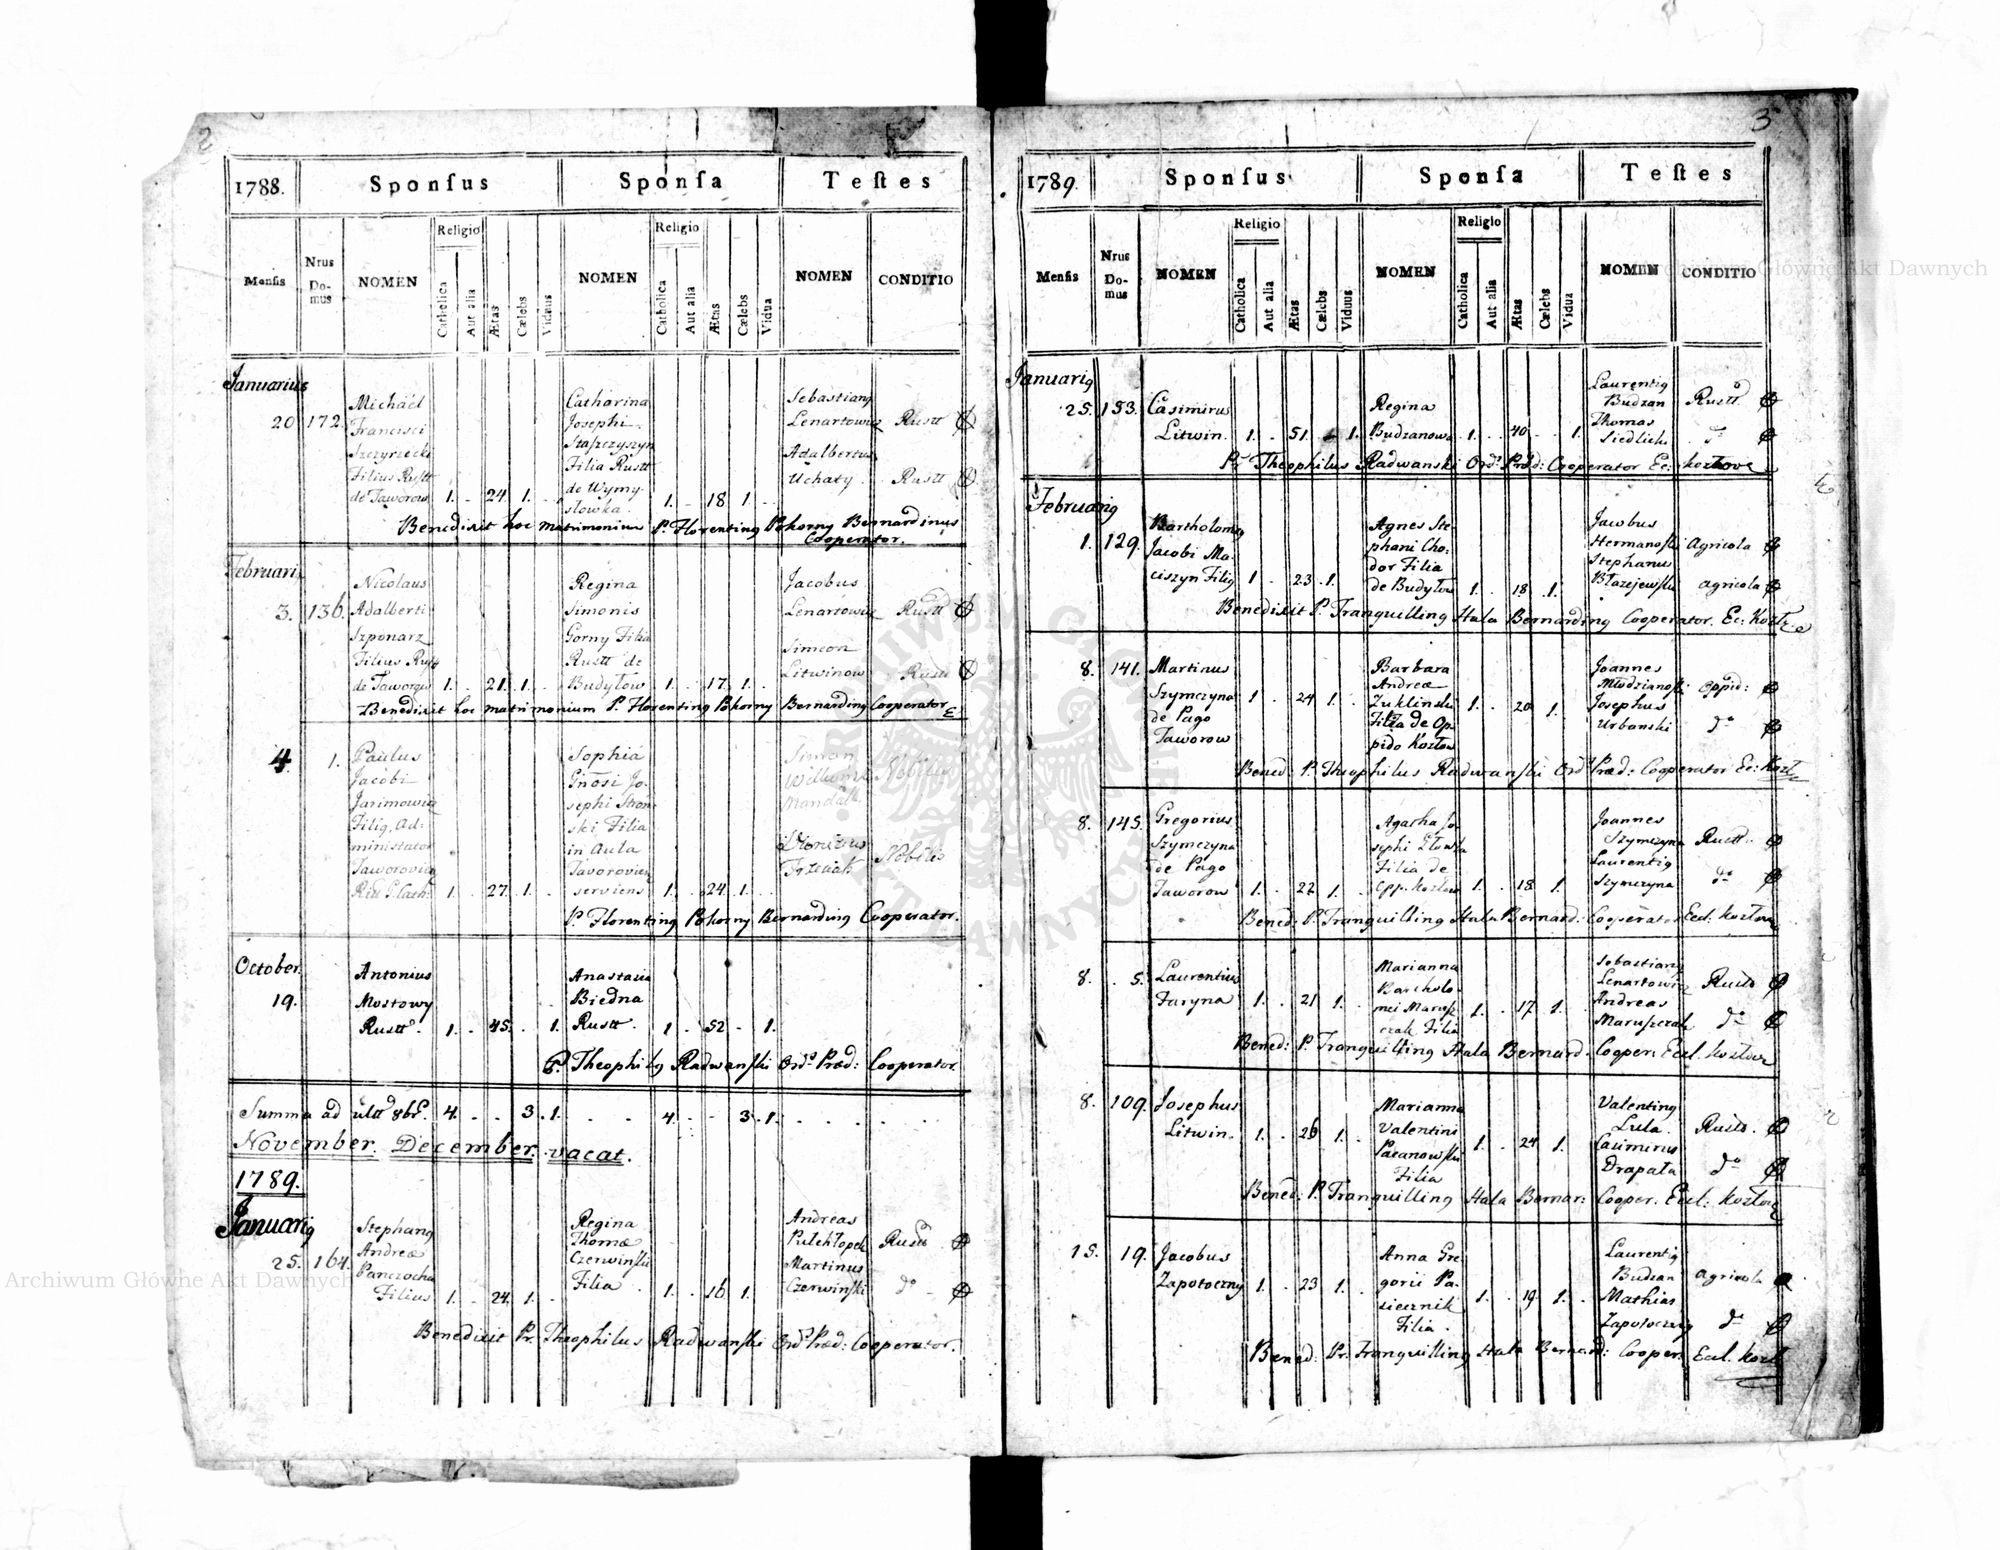 2
1788.
Sponsus
Sponsa
Testes
Mensis
Nrus Do-mus
NOMEN
Religio
Catholica
Aut alia
Ætas
Cælebs
Viduus
NOMEN
Religio
Catholica
Aut alia
Ætas
Cælebs
Vidua
NOMEN
CONDITIO
Januarius
20 172
Michael
Francisci
Szczyrzecki
Filius Rustt
de Taworow 1. - 24. 1.
Catharina
Josephi
Filia Rustt
de Wymy-
slowka. 1. 18. 1.
Sebastiany
Lenartowicz Rustt
Adalbertus
Uchaty. Rustt
Benedixit hoc matrimonium P. Florenting Pokorny Bernardinus
Cooperator.
Februari
3. 136.
Nicolaus
Adalberti
Szponarz
Filius Rustt
de Taworow 1. 21. 1.
Regina
Simonis
Gorny Filia
Rustt de
Budylow 1. 17. 1.
Jacobus
Lenartowicz Rustt
Simeon
Litwinow Rustt
Benedixit hoc matrimonium P. Florenting Pokorny Bernarding Cooperator
4. 1.
Paulus
Jacobi
Jarimowicz
Filig. Ad-
ministrator
Taworovien
1. 27. 1.
Sophia
Gnosi Jo-
sephi Stron-
ski Filia
in Aula
Tavorovien
serviens 1. 24. 1.
Simon
Nobilis
Nobilis
P. Florenting Pokorny Bernarding Cooperator.
October.
19.
Antonius
Mostowy
Rustt. 1. - 45. 1.
Anastasia
Biedna
Rustt. 1 - 52 - 1.
P. Theophilg Radwanski Ord. Præd: Cooperator.
Summa ad ultt 8br. 4. - - 3. 1. - - 4. - - 3. 1.
November. December. vacat.
1789.
Januarig
25. 164.
Stephang
Andreæ
Panczocha
Filius 1. 24. 1.
Regina
Thomæ
Czerwinski
Filia. 1. 16. 1.
Andreas
Pulchlopek Rustt
Martinus
Czerwinski do
Benedixit Pr. Theophilus Radwanski Ord. Præd: Cooperator.
3
1789.
Sponsus
Sponsa
Testes
Mensis
Nrus Do-mus
NOMEN
Religio
Catholica
Aut alia
Ætas
Cælebs
Viduus
NOMEN
Religio
Catholica
Aut alia
Ætas
Cælebs
Vidua
NOMEN
CONDITIO
Januarig
25. 153.
Casimirus
Litwin. 1. - 51. 1.
Regina
Budzanowa 1. - 40 - 1.
Laurentig
Budzan Rustt.
Thomas
Siedlicki do
Pr. Theophilus Radwanski Ord. Præd: Cooperator Ec: Kozlove
Februarig
1. 129.
Bartholomeg
Jacobi Ma-
ciszyn Filig 1 - 23. 1.
Agnes Ste-
phani Cho-
dor Filia
de Budylow 1. 18. 1.
Jacobus
Hermanoski Agricola
Stephanus
Blazejewski agricola
Benedixit P. Tranquilling Hala Bernarding Cooperator. Ec: Kozl
8. 141.
Martinus
Szymczyna 1 - 24 1.
de Pago
Taworow
Barbara
Andreæ
Zuklinski 1. 20 1.
Filia de Op-
pido Kozlow
Joannes
Mlodzianoski oppid:
Josephus
Urbanski do
Bened: P. Theophilus Radwanski Ord. Præd: Cooperator Ec: Kozl
8. 145.
Gregorius
Szymczyna
de Pago
Taworow 1. - 22 1.
Agatha Jo-
sephi
Filia de
Opp. Kozlow 1. 18 1.
Joannes
Szymczyna Rustt.
Laurentig
Szymczyna do
Bened: P. Tranquilling Hala Bernard: Cooperator Eccl: Kozlow
8. 5.
Laurentius
Furyna 1. 21 1.
Marianna
Bartholo-
mei Marusz-
czak Filia 1. 17 1.
Sebastiang
Lenartowicz Rustt
Andreas
Maruszczak do
Bened: P. Tranquilling Hala Bernard. Cooper: Eccl. Kozlow
8. 109.
Josephus
Litwin. 1. - 26 1.
Marianna
Valentini
Pacanowski
Filia 1. 24 1.
Valenting
Lula. Rustt.
Casimirus
Drapala do
Bened: P. Tranquilling Hala Bernar: Cooper. Eccl: Kozlow
15. 19.
Jacobus
Zapotoczny 1. 23 1.
Anna Gre-
gorii Pa-
siecznik
Filia. 1. 19 1.
Laurentig
Budzan agricola
Mathias
Zapotoczny do
Bened: Pr. Tranquilling Hala Bernard: Cooper: Eccl. Kozl
Archiwum Główne Akt Dawnych
Archiwum Główne Akt Dawnych
ARCHIWUM GŁÓWNE AKT DAWNYCH